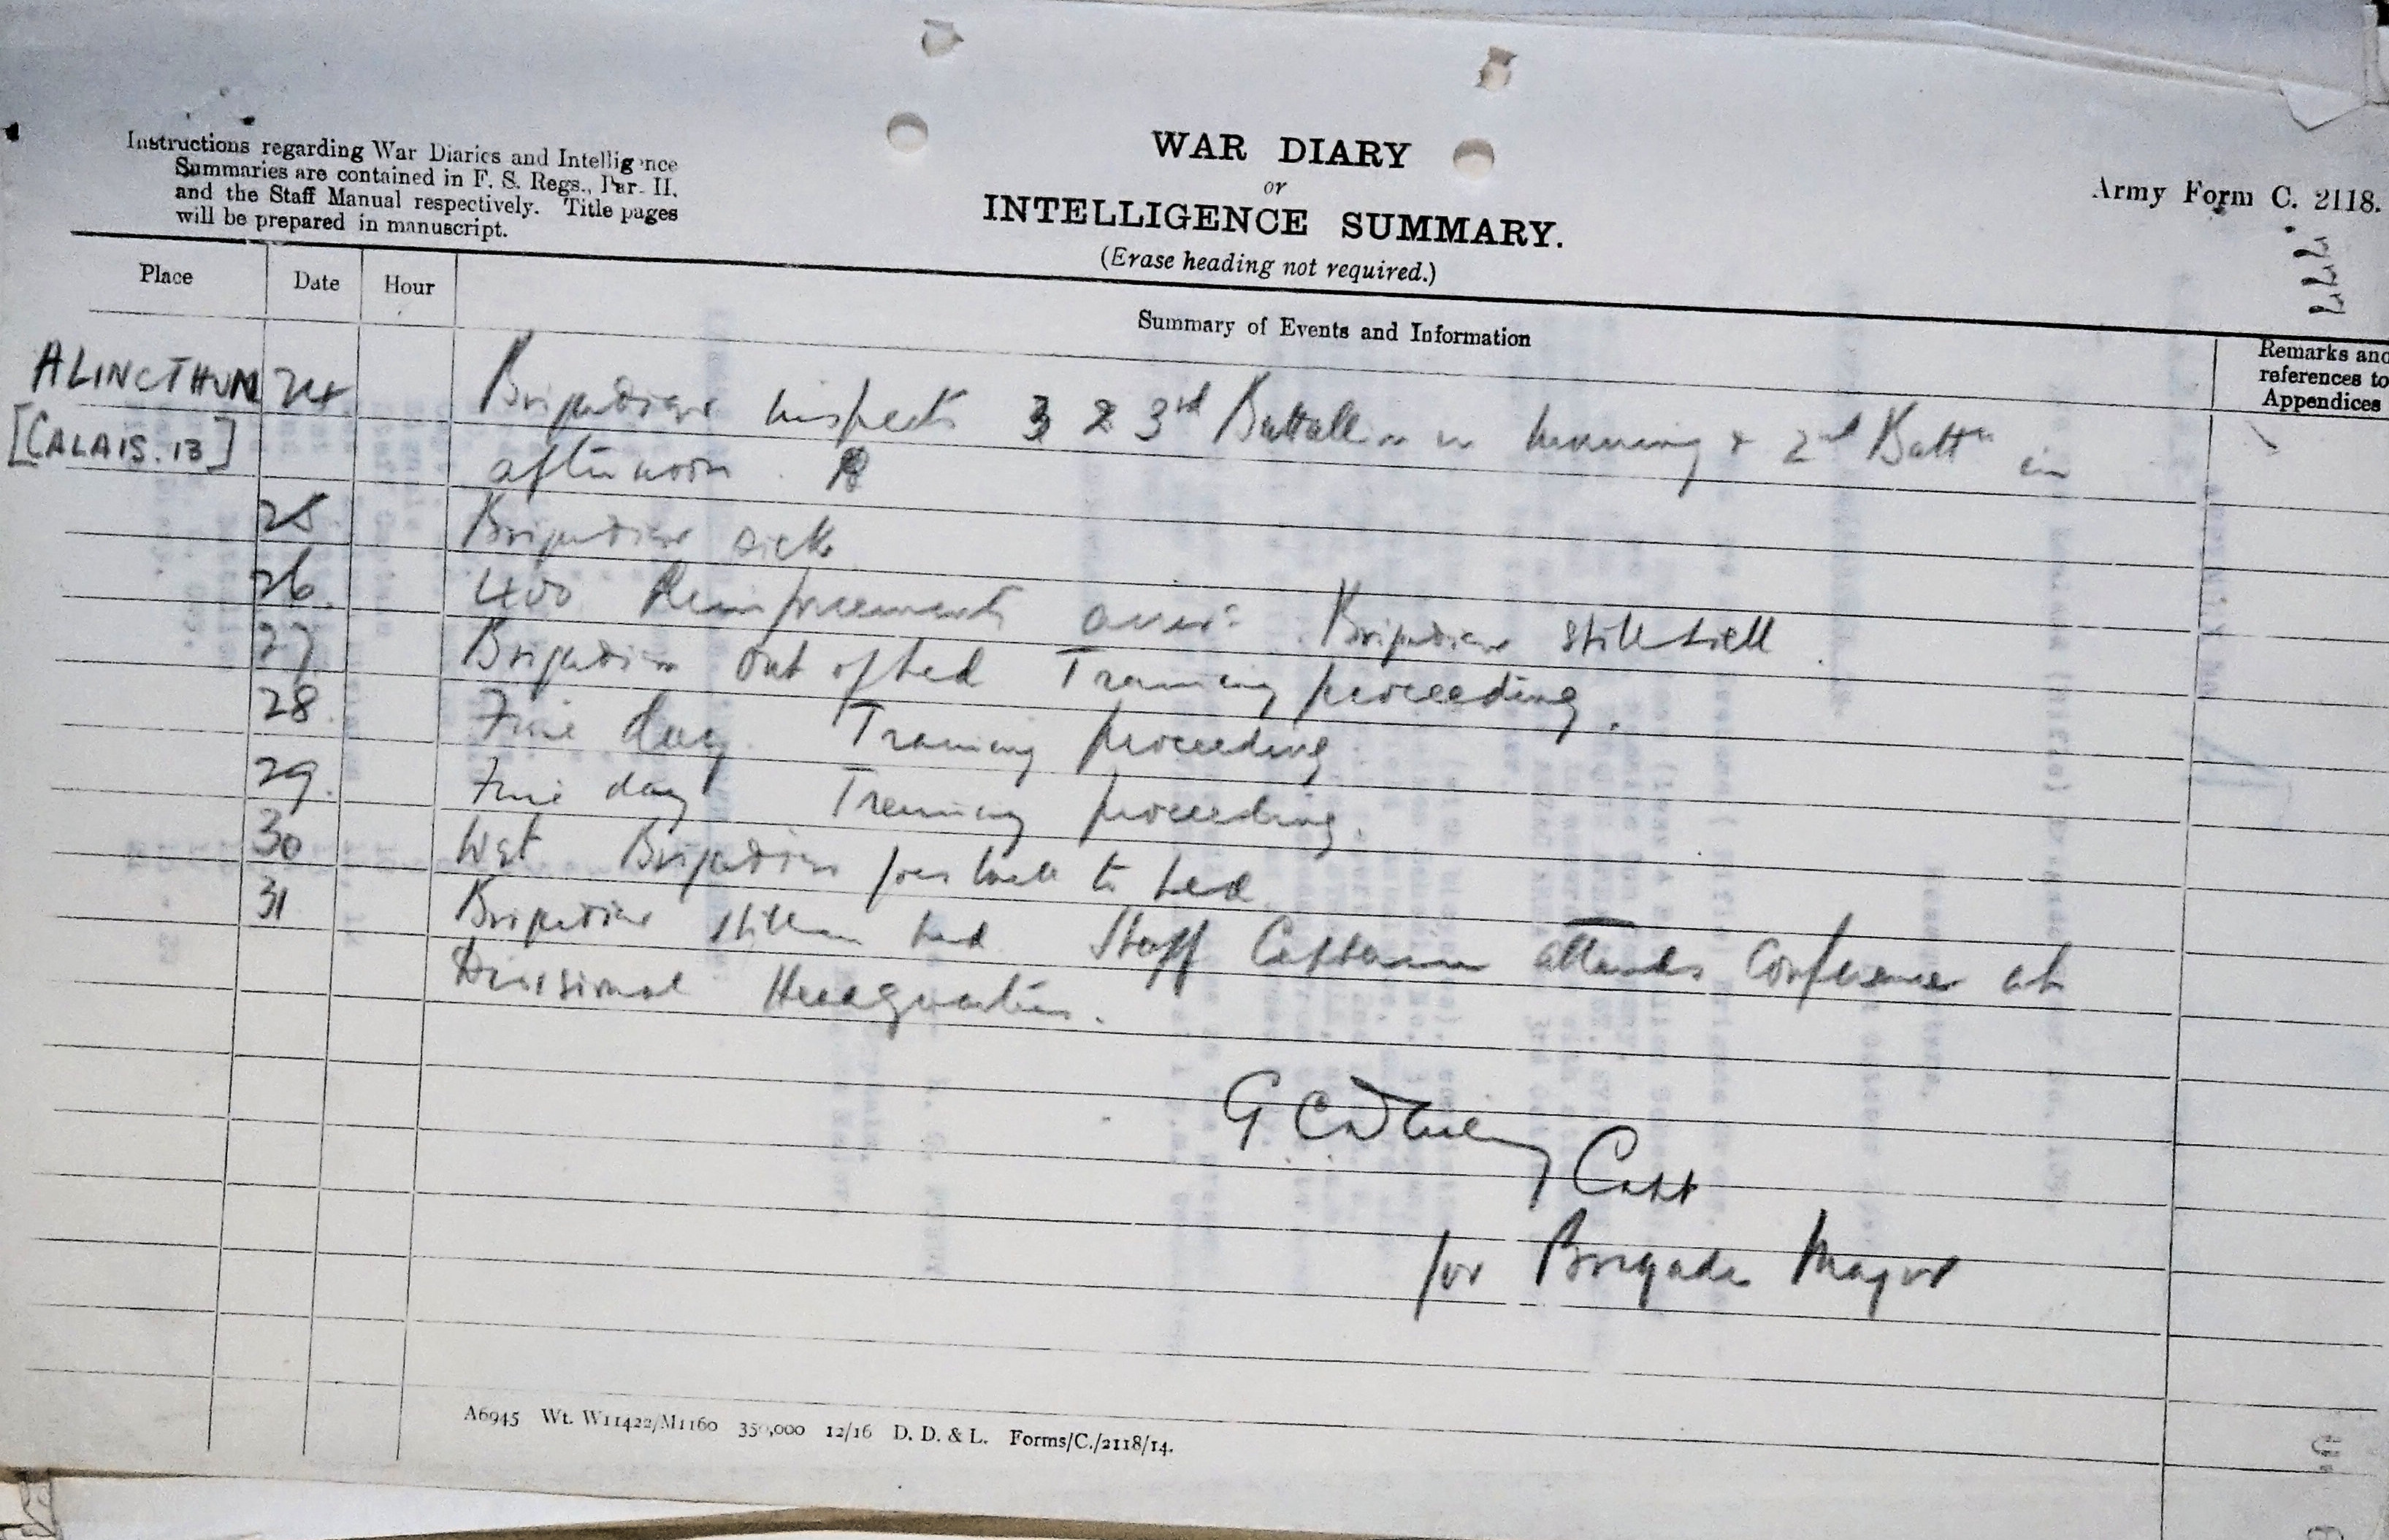 Instructions regarding War Diaries and Intelligence
Summaries are contained in F. S. Regs., Par- II.
and the Staff Manual respectively. Title pages
will be prepared in manuscript.
WAR DIARY
or
INTELLIGENCE SUMMARY.
(Erase heading not required.)
Army Form C. 2118.
Place
Date
Hour
Summary of Events and Information
Remarks and
references to
Appendices
ALINCTHUN 24 Brigadier inspects 3rd Battalion in morning & 2nd Battn in
[CALAIS.13] afternoon.
25 Brigadier sick
26. 400 Reinforcements arrive. Brigadier still sick.
27. Brigadier out of bed Training proceeding.
28. Fine day. Training proceeding
29. Fine day Training proceeding.
30 Wet Brigadier goes back to bed
31 Brigadier still in bed Staff Captain attends Conference at
Divisional Headquarters.
Capt
for Brigade Major
A6945 Wt. W11422/M1160 350,000 12/16 D. D. & L. Forms/C./2118/14.